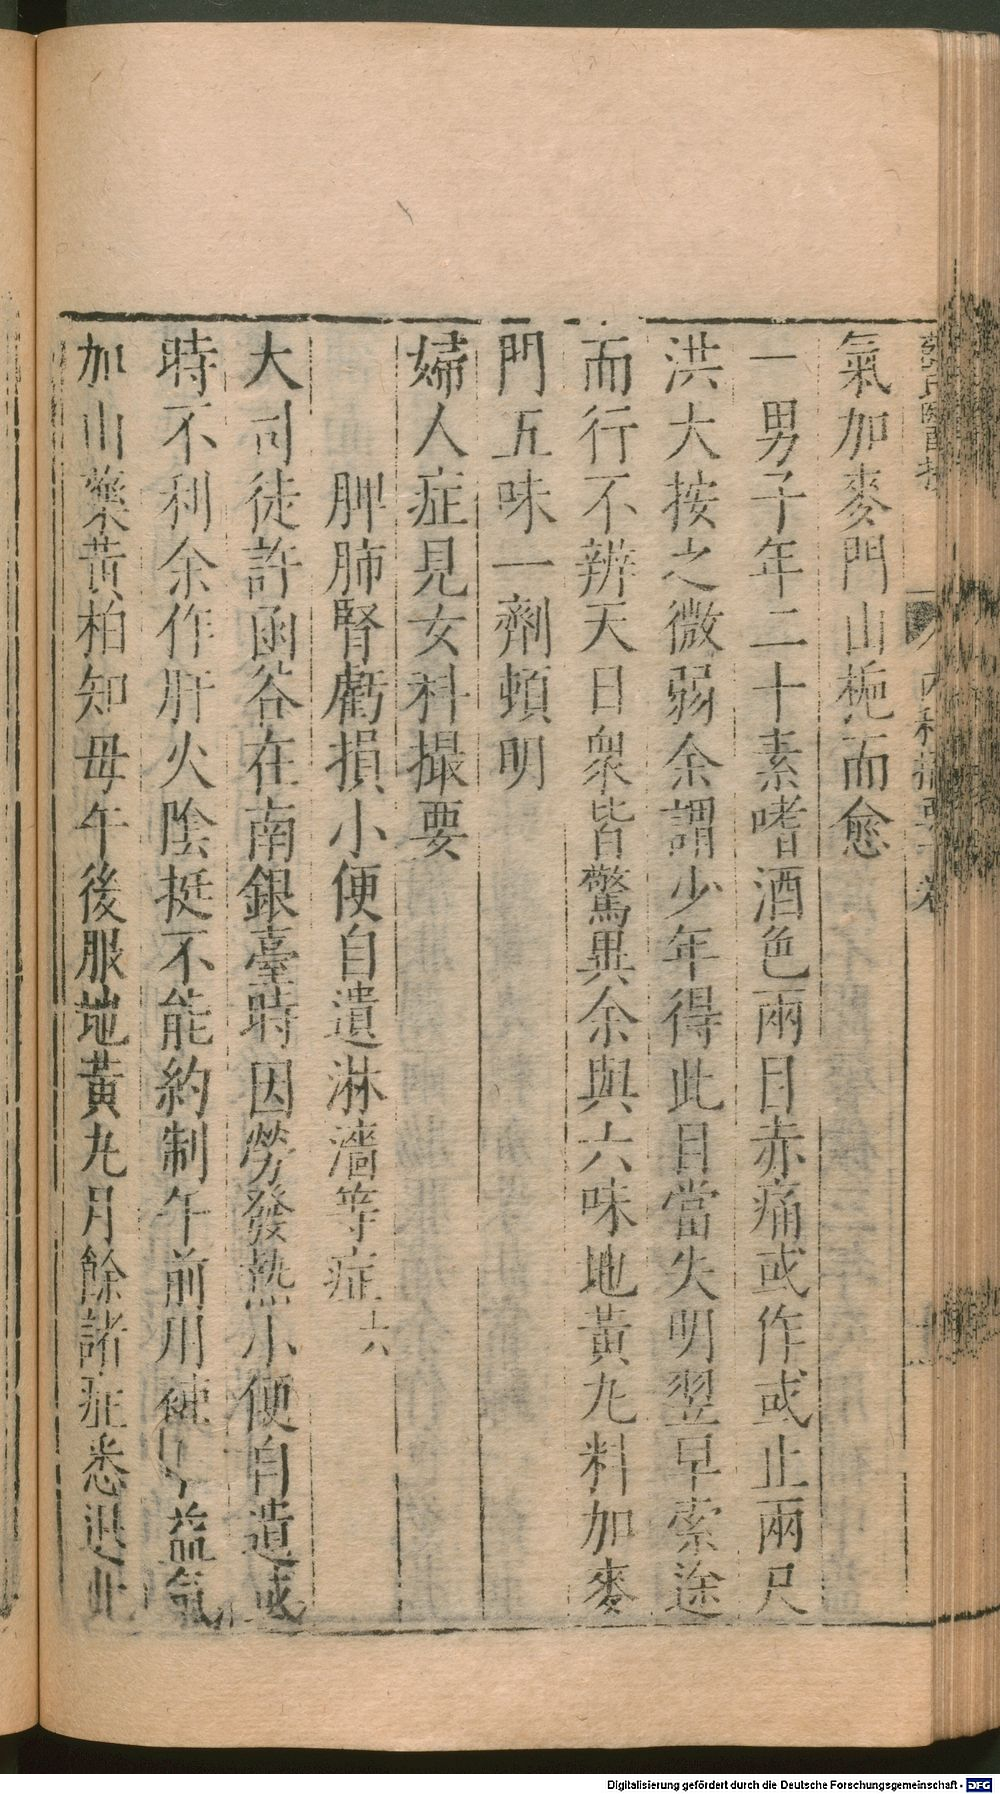 氣加麥門山梔而愈
一男子年二十素嗜酒色兩目赤痛或作或止兩尺
洪大按之微弱余謂少年得此目當失明翌早索途
而行不辨天日衆皆驚異余與六味地黃丸料加麥
門五味一劑頓明
婦人症見女科撮要
脾肺腎虧損小便自遺淋濇等症六
大司徒許函谷在南銀臺時因勞發熱小便自遺或
時不利余作肝火陰挺不能約制午前用補中益氣
加山藥黃柏知母午後服地黃丸月餘諸症悉退此
Digitalisierung gefördert durch die Deutsche Forschungsgemeinschaft - DFG